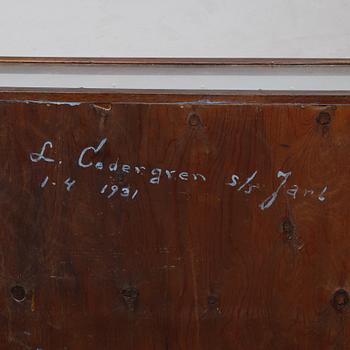 L. Cedergren s/s Jarl
1-4 1931